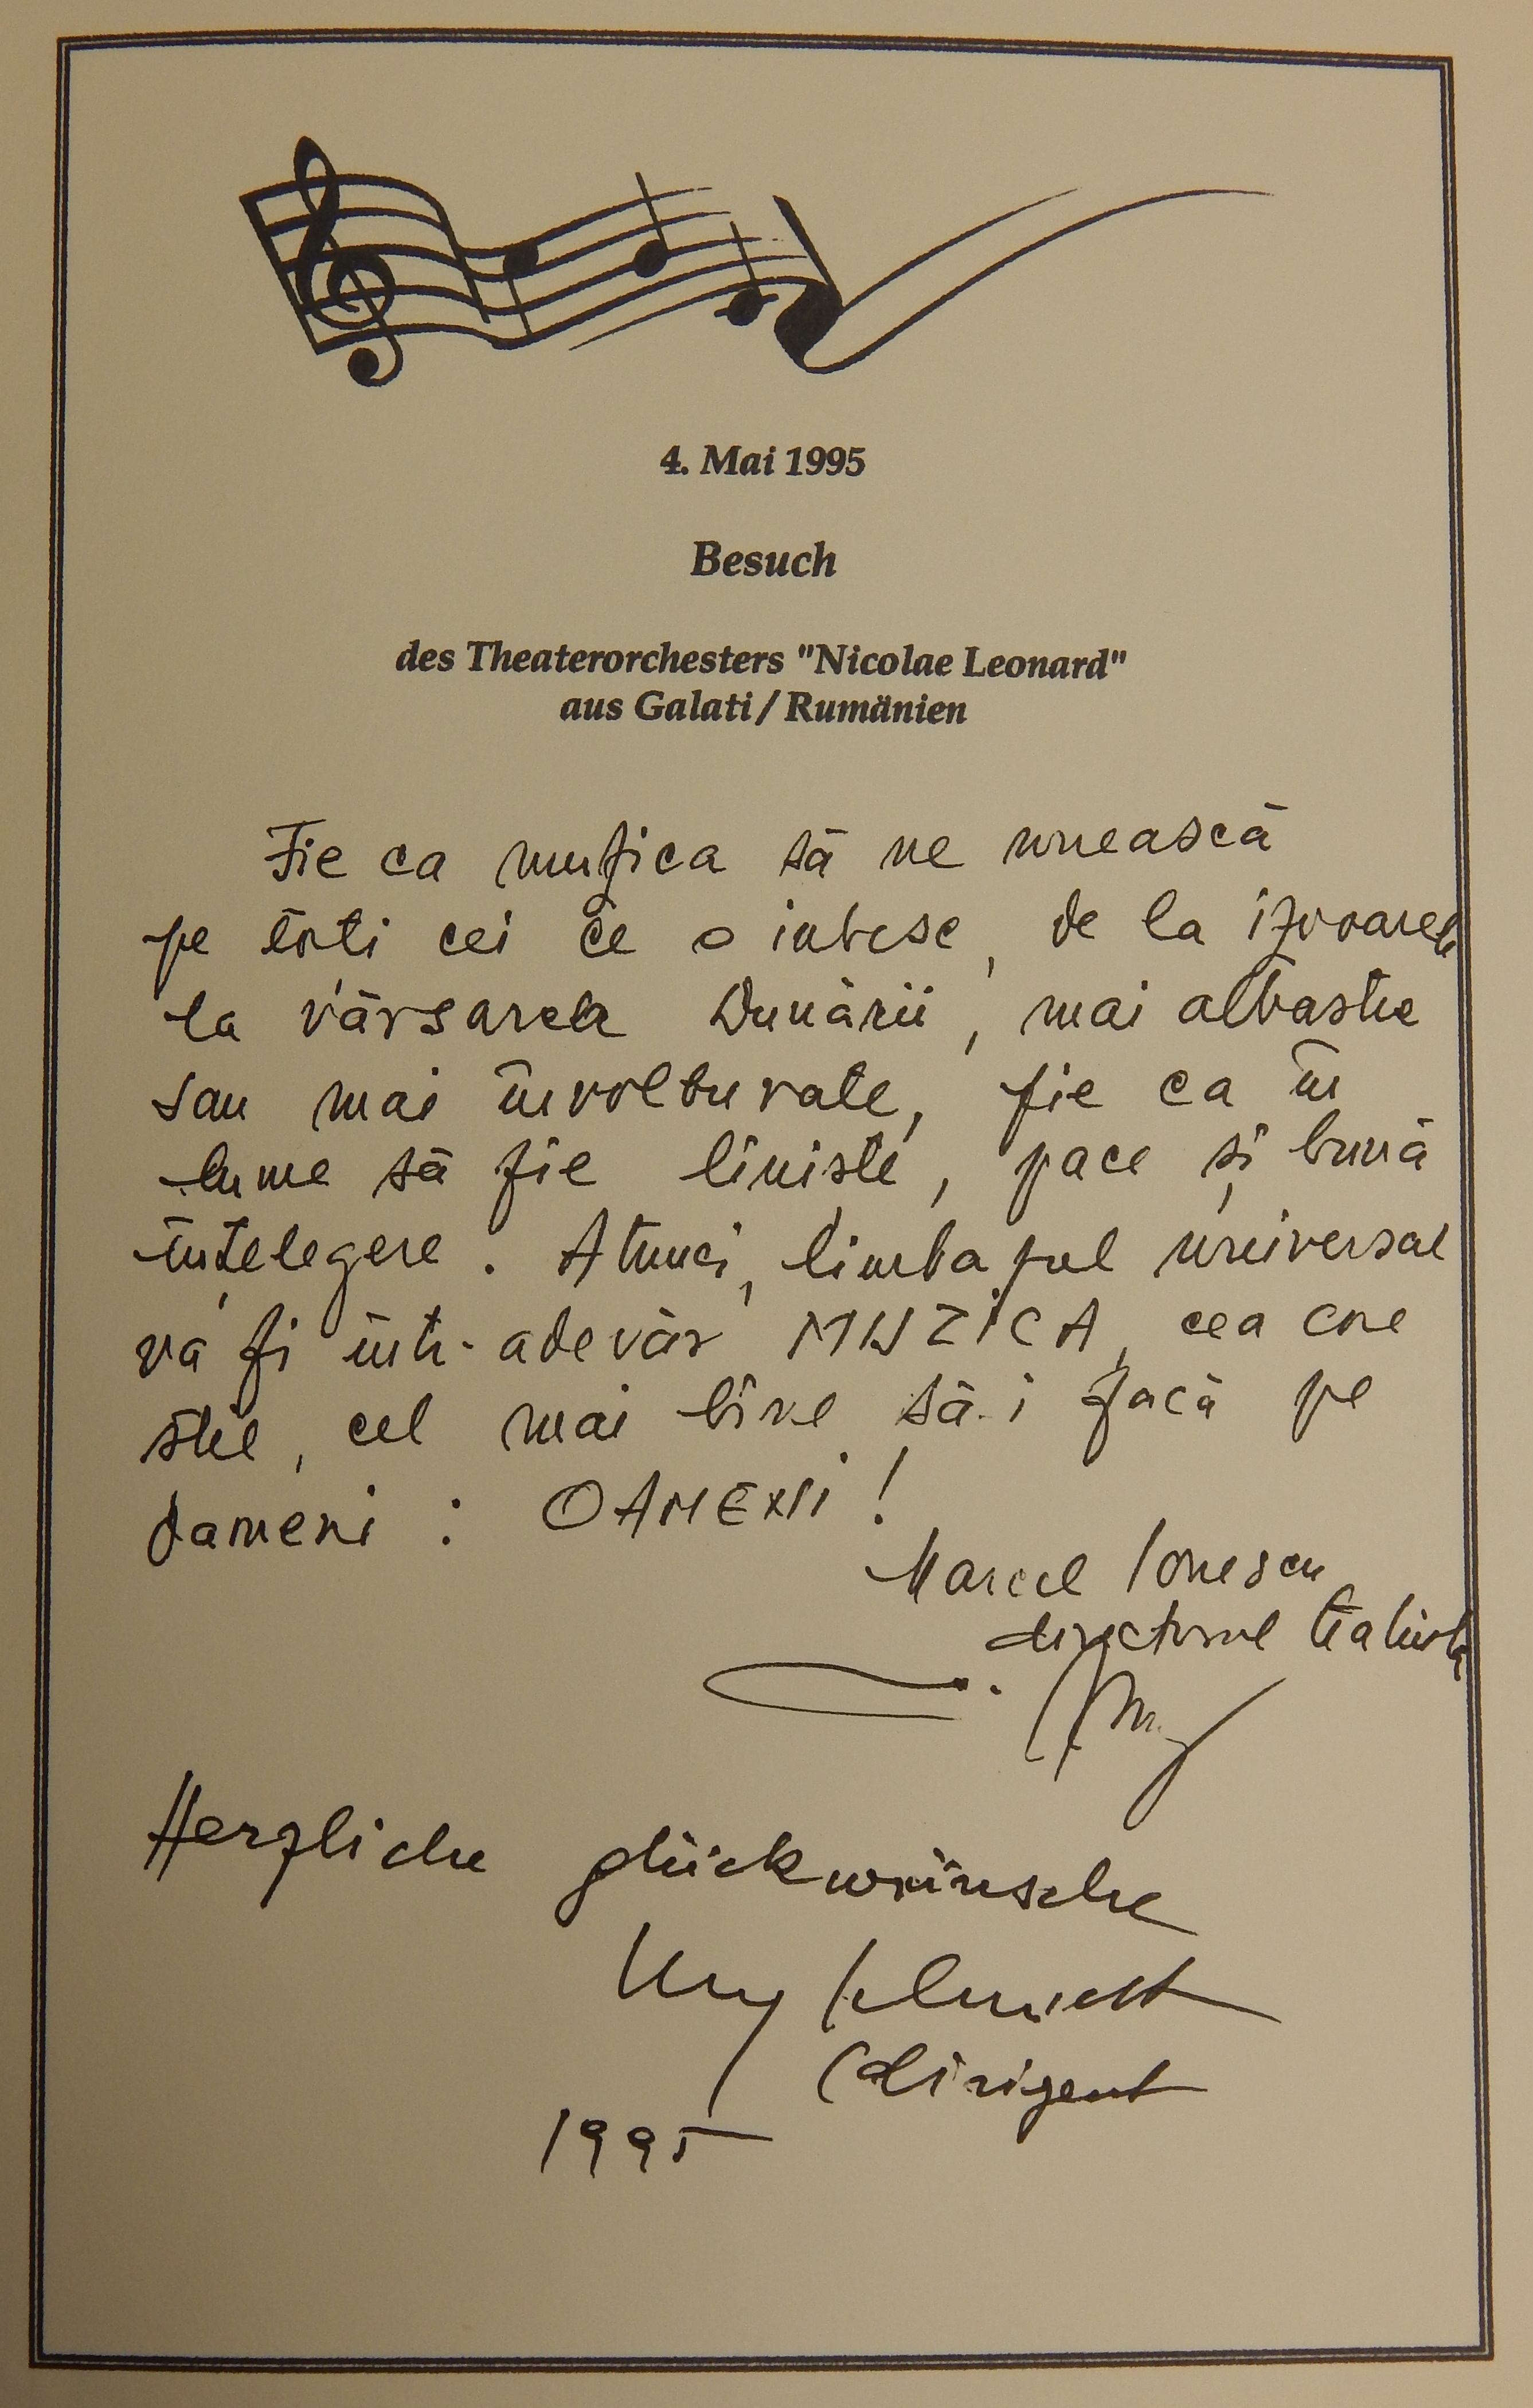 4. Mai 1995
Besuch
des Theaterorchesters "Nicolae Leonard"
aus Galati / Rumänien
Fie ca muzica să ne unească
pe toti cei ce o iubesc, de la izvoarele
la vărsarea Dunării, mai albastre
sau mai învolburate, fie ca în
lume să fie liniste, pace și bună
înțelegere. Atunci, limbajul universal
va fi într-adevăr MUZICA, cea care
stie, cel mai bine să-i facă pe
oameni : OAMENI !
Marcel Ionescu
directorul teatrului
Herzliche glückwünsche
(dirigent
1995